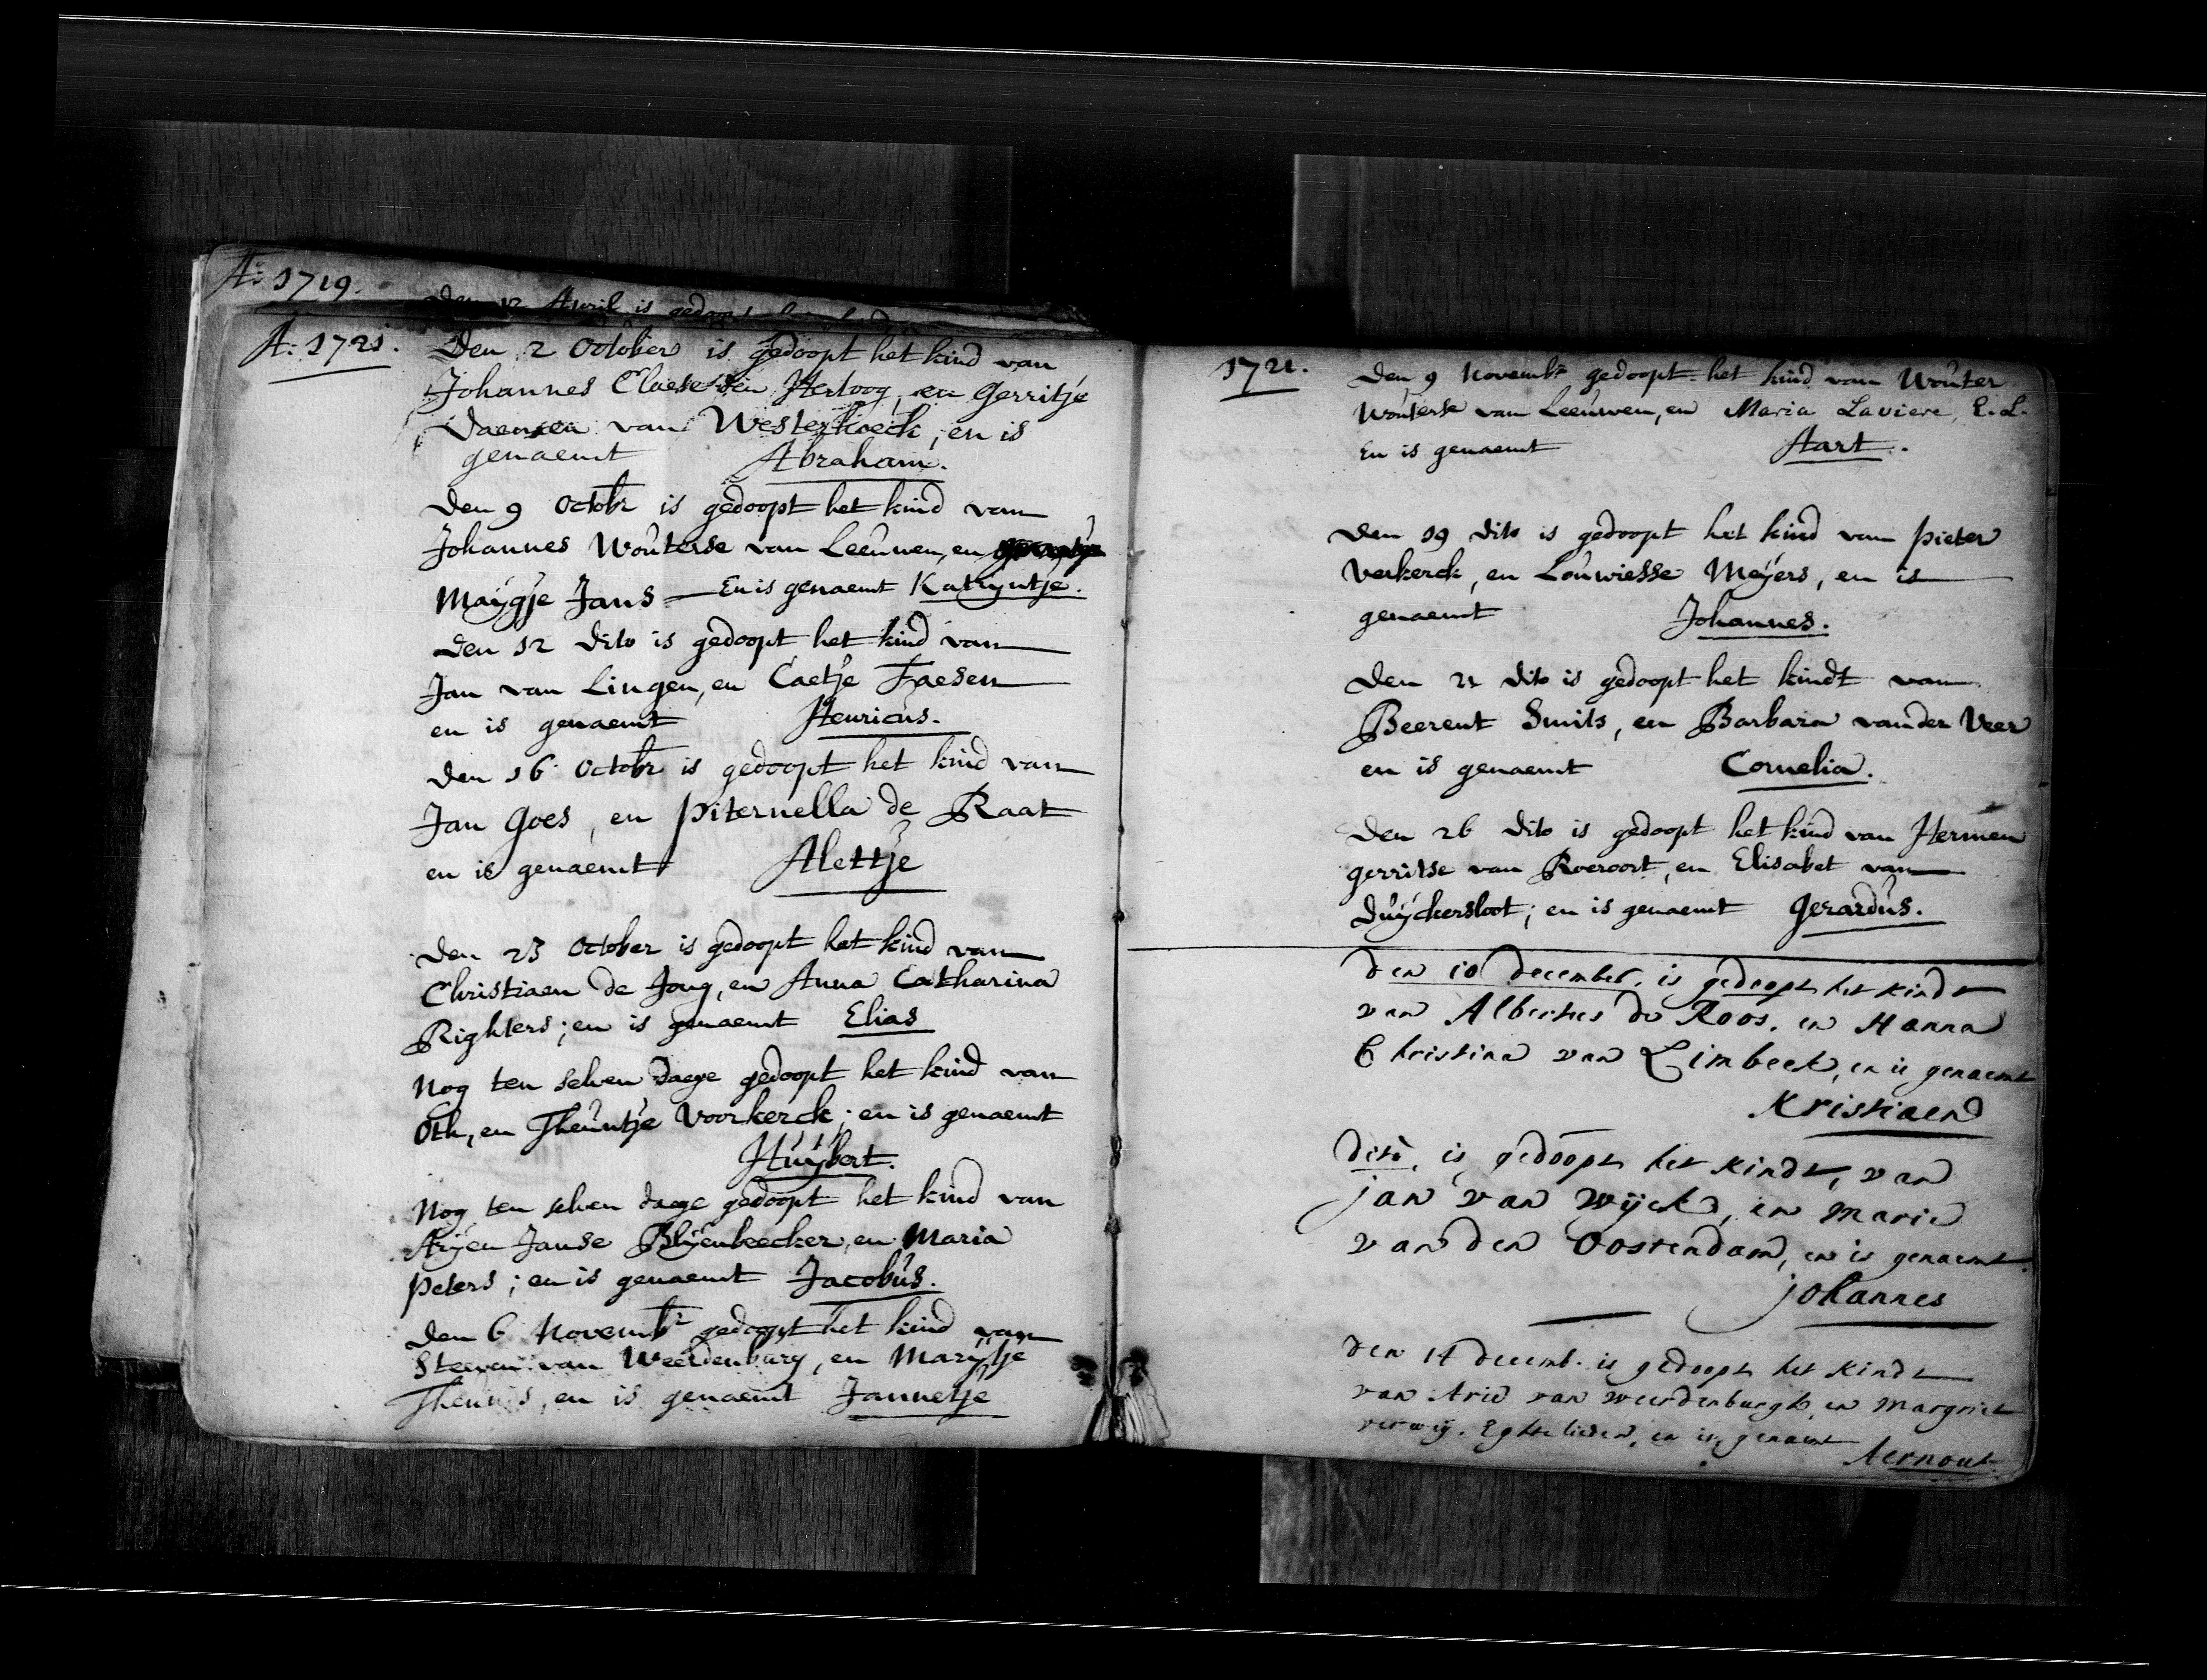 A: 1719.
Den 12 April is gedoopt
A: 1721.
Den 2 October is gedoopt het kind van
Johannes Claese den Hertoog, en Gerritje
Daensen van Westerhoeck; en is
genaemt Abraham.
Den 9 Octobr is gedoopt het kind van
Johannes Wouterse van Leeuwen, en
Maÿgje Jans - En is genaemt Katryntje.
Den 12 dito is gedoopt het kind van
Jan van Lingen, en Caetje Faesen
en is genaemt Henricus.
Den 16 Octobr is gedoopt het kind van
Jan Goes, en Piternella de Raat
en is genaemt Alettje
Den 23 October is gedoopt het kind van
Christiaen de Jong, en Anna Catharina
Righters; en is genaemt Elias
Nog ten selven daege gedoopt het kind van
Oth, en Theuntje Voorkerck; en is genaemt
Huÿbert.
Nog ten selven daege gedoopt het kind van
Arÿen Janse Blÿenbeecker, en Maria
Peters; en is genaemt Jacobus.
Den 6 Novembr gedoopt het kind van
Steeven van Weerdenburg, en Marytje
Theunis, en is genaemt Jannetje
1721.
Den 9 Novembr gedoopt het kind van Wouter
Wouterse van Leeuwen, en Maria Laviere, E. L.
En is genaemt Aart.
Den 19 dito is gedoopt het kind van Pieter
Verkerck, en Louwiesse Meÿers, en is
genaemt Johannes.
Den 21 dito is gedoopt het kindt van
Beerent Smits, en Barbara vander Veer
en is genaemt Cornelia.
Den 26 dito is gedoopt het kind van Hermen
Gerritse van Roeroort, en Elisabet van
Duÿckersloot; en is genaemt Gerardus.
Den 10 december. is gedoopt het kindt
van Albertus de Roos. en Hanna
Christina van Limbeek, en is genaemt
Kristiaen
dito, is gedoopt het kindt, van
jan van Wijck, en Marie
van den Oostendam, en is genaemt.
johannes
Den 14 decemb. is gedoopt het kindt
van Arie van weerdenburgh en Margriet
verweij. Eghte lieden, en is genaemt
Aernout.